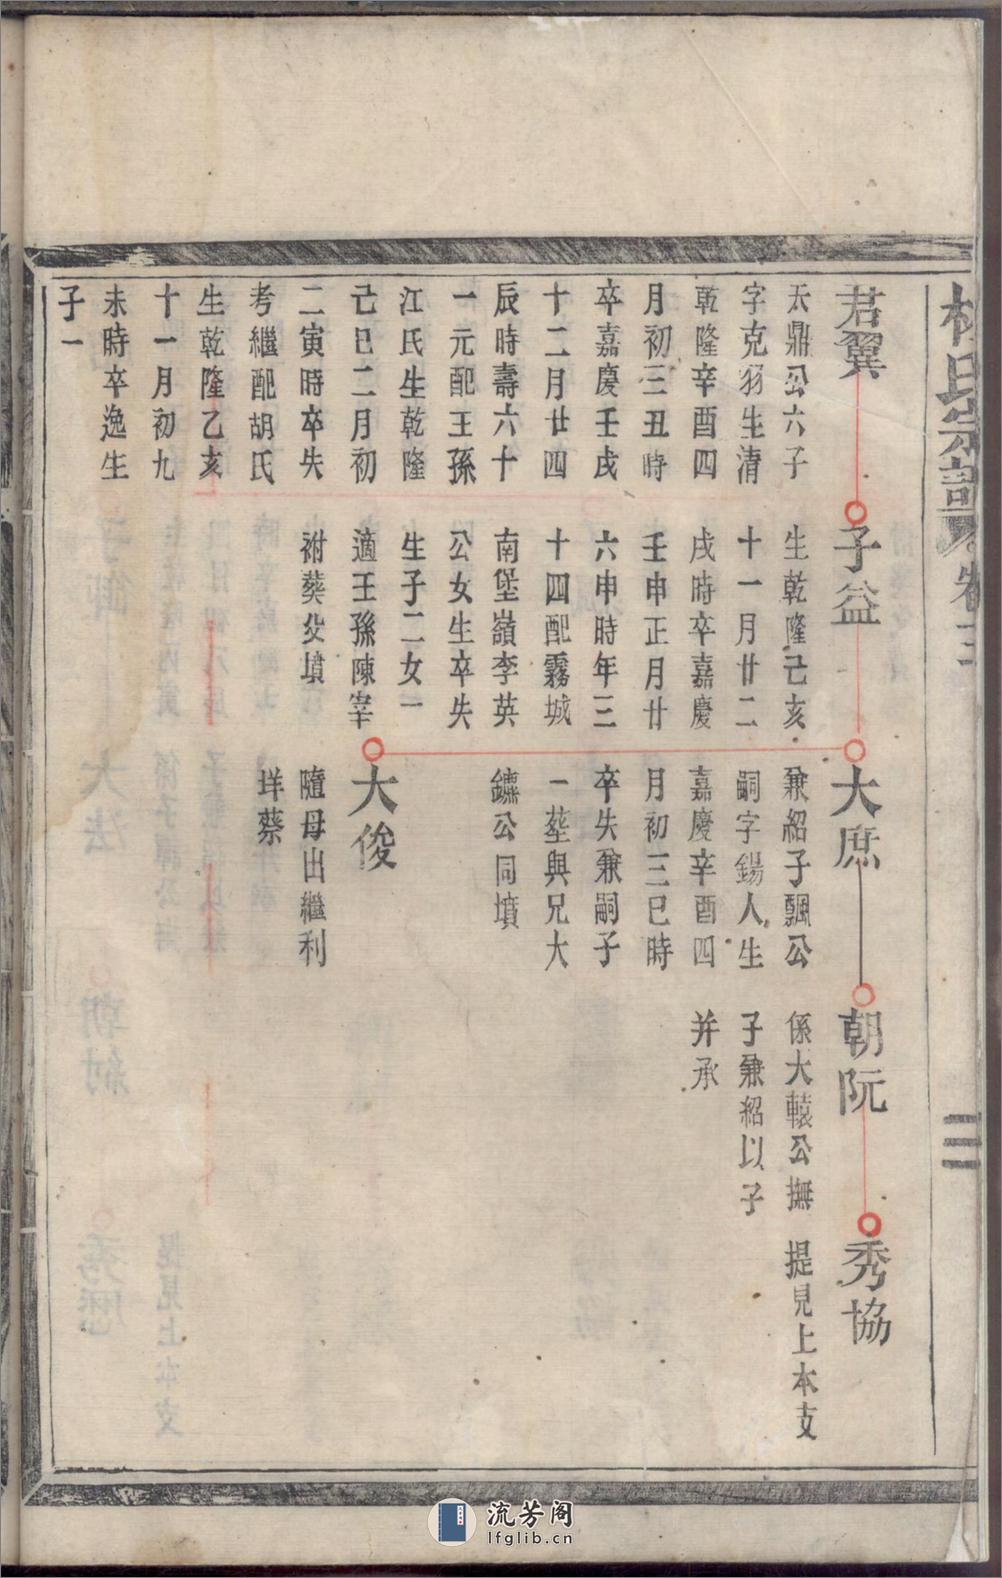 氏宗譜 卷十二
君翼
天鼎公六子
字克羽生清
乾隆辛酉四
月初三丑時
卒嘉慶壬戌
十二月廿四
辰時壽六十
一元配王孫
江氏生乾隆
己巳二月初
二寅時卒失
考繼配胡氏
生乾隆乙亥
十一月初九
未時卒逸生
子一
子益
生乾隆己亥
十一月廿二
戌時卒嘉慶
壬申正月廿
六申時年三
十四配霧城
南堡嶺李英
公女生卒失
生子二女一
適王孫陳宰
祔葬父墳
大庶
兼紹子飄公
嗣字錫人生
嘉慶辛酉四
月初三巳時
卒失兼嗣子
一塟與兄大
鏽公同墳
大俊
隨母出繼利
垟蔡
朝阮
係大轅公撫
子兼紹以子
并承
秀協
提見上本支
三
流芳阁
lfglib.cn